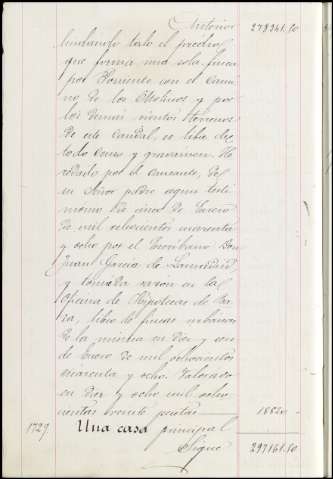 Anterior 278341.50
lindando todo el predio,
que forma una sola finca
por Poniente con el Cami
no de los Molinos y por
los demás vientos terrenos
de este caudal, es libre de
todo censo y gravamen. He
redado por el causante, de
su Señor padre según testi
monio de cinco de Enero
de mil ochocientos cuarenta
y ocho por el Escribano Don
Juan García de
y tomada razón en la
Oficina de Hipotecas de
libro de fincas urbanas
de la misma en diez y
de Enero de mil ochocientos
cuarenta y ocho. Valorada
en diez y ocho mil ocho
cientas veinte pesetas 18820.
1729 Una casa principal
Sigue 297161.50